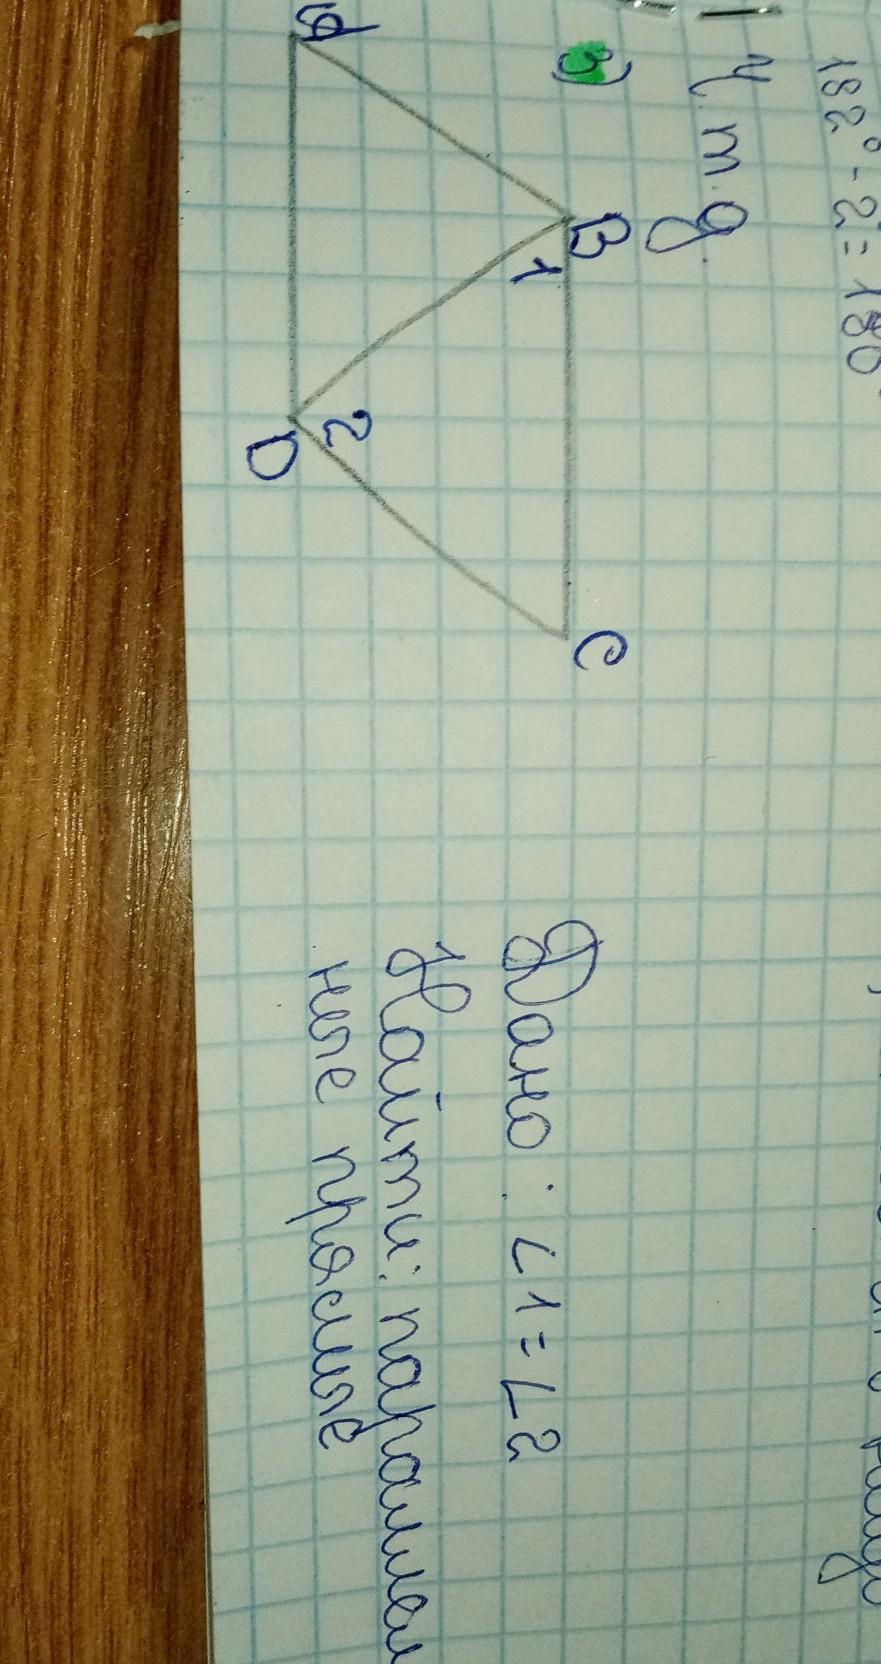 182° - 2 = 180°
ч.т.д.
3)
B
C
1
2
A
D
Дано: ∠1=∠2
Найти: параллель
ные прямые